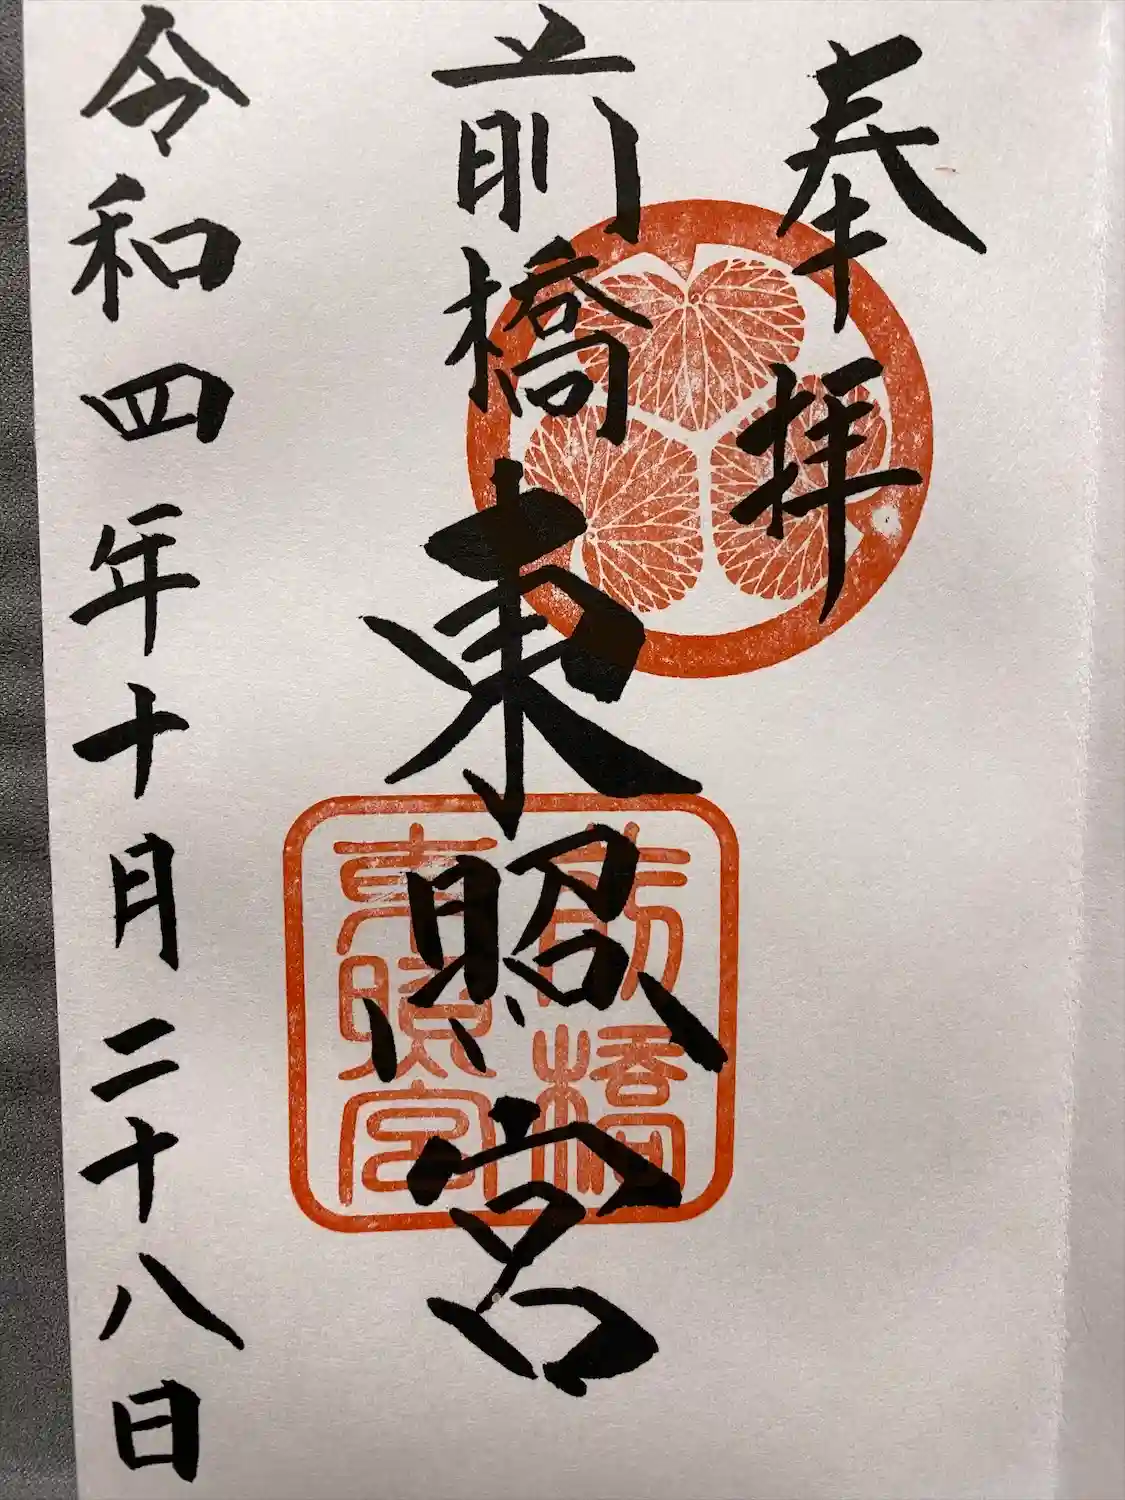 奉拝
前橋東照宮
令和四年十月二十八日
前橋
東照宮